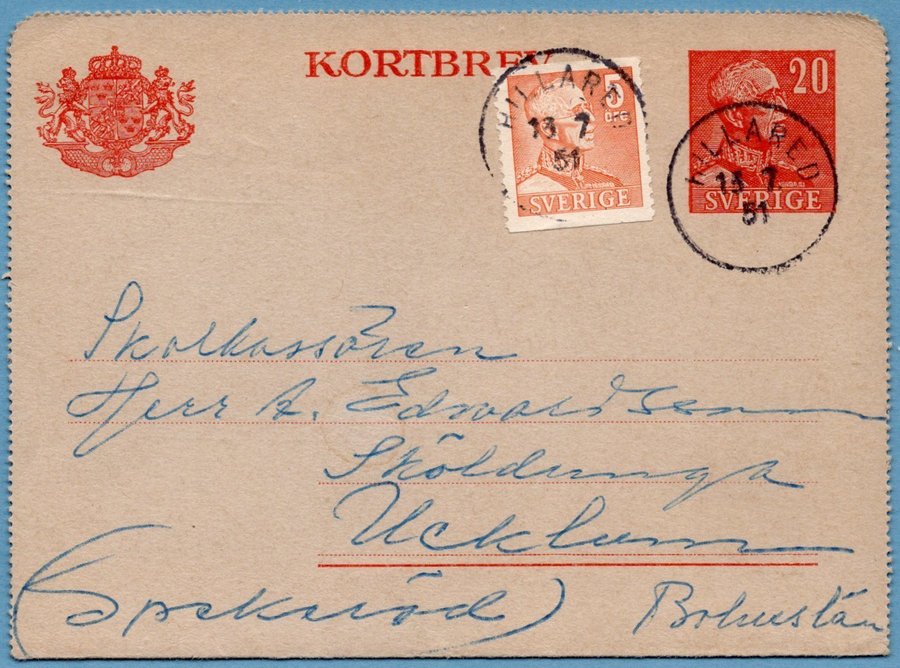 KORTBREV
5
ÖRE
SVERIGE
HILLARED
13 7
51
20
SVERIGE
HILLARED
13 7
51
Skolkassören
Herr A. Edwardsson
Sköldunga
Ucklum
(Spekeröd)
Bohuslän